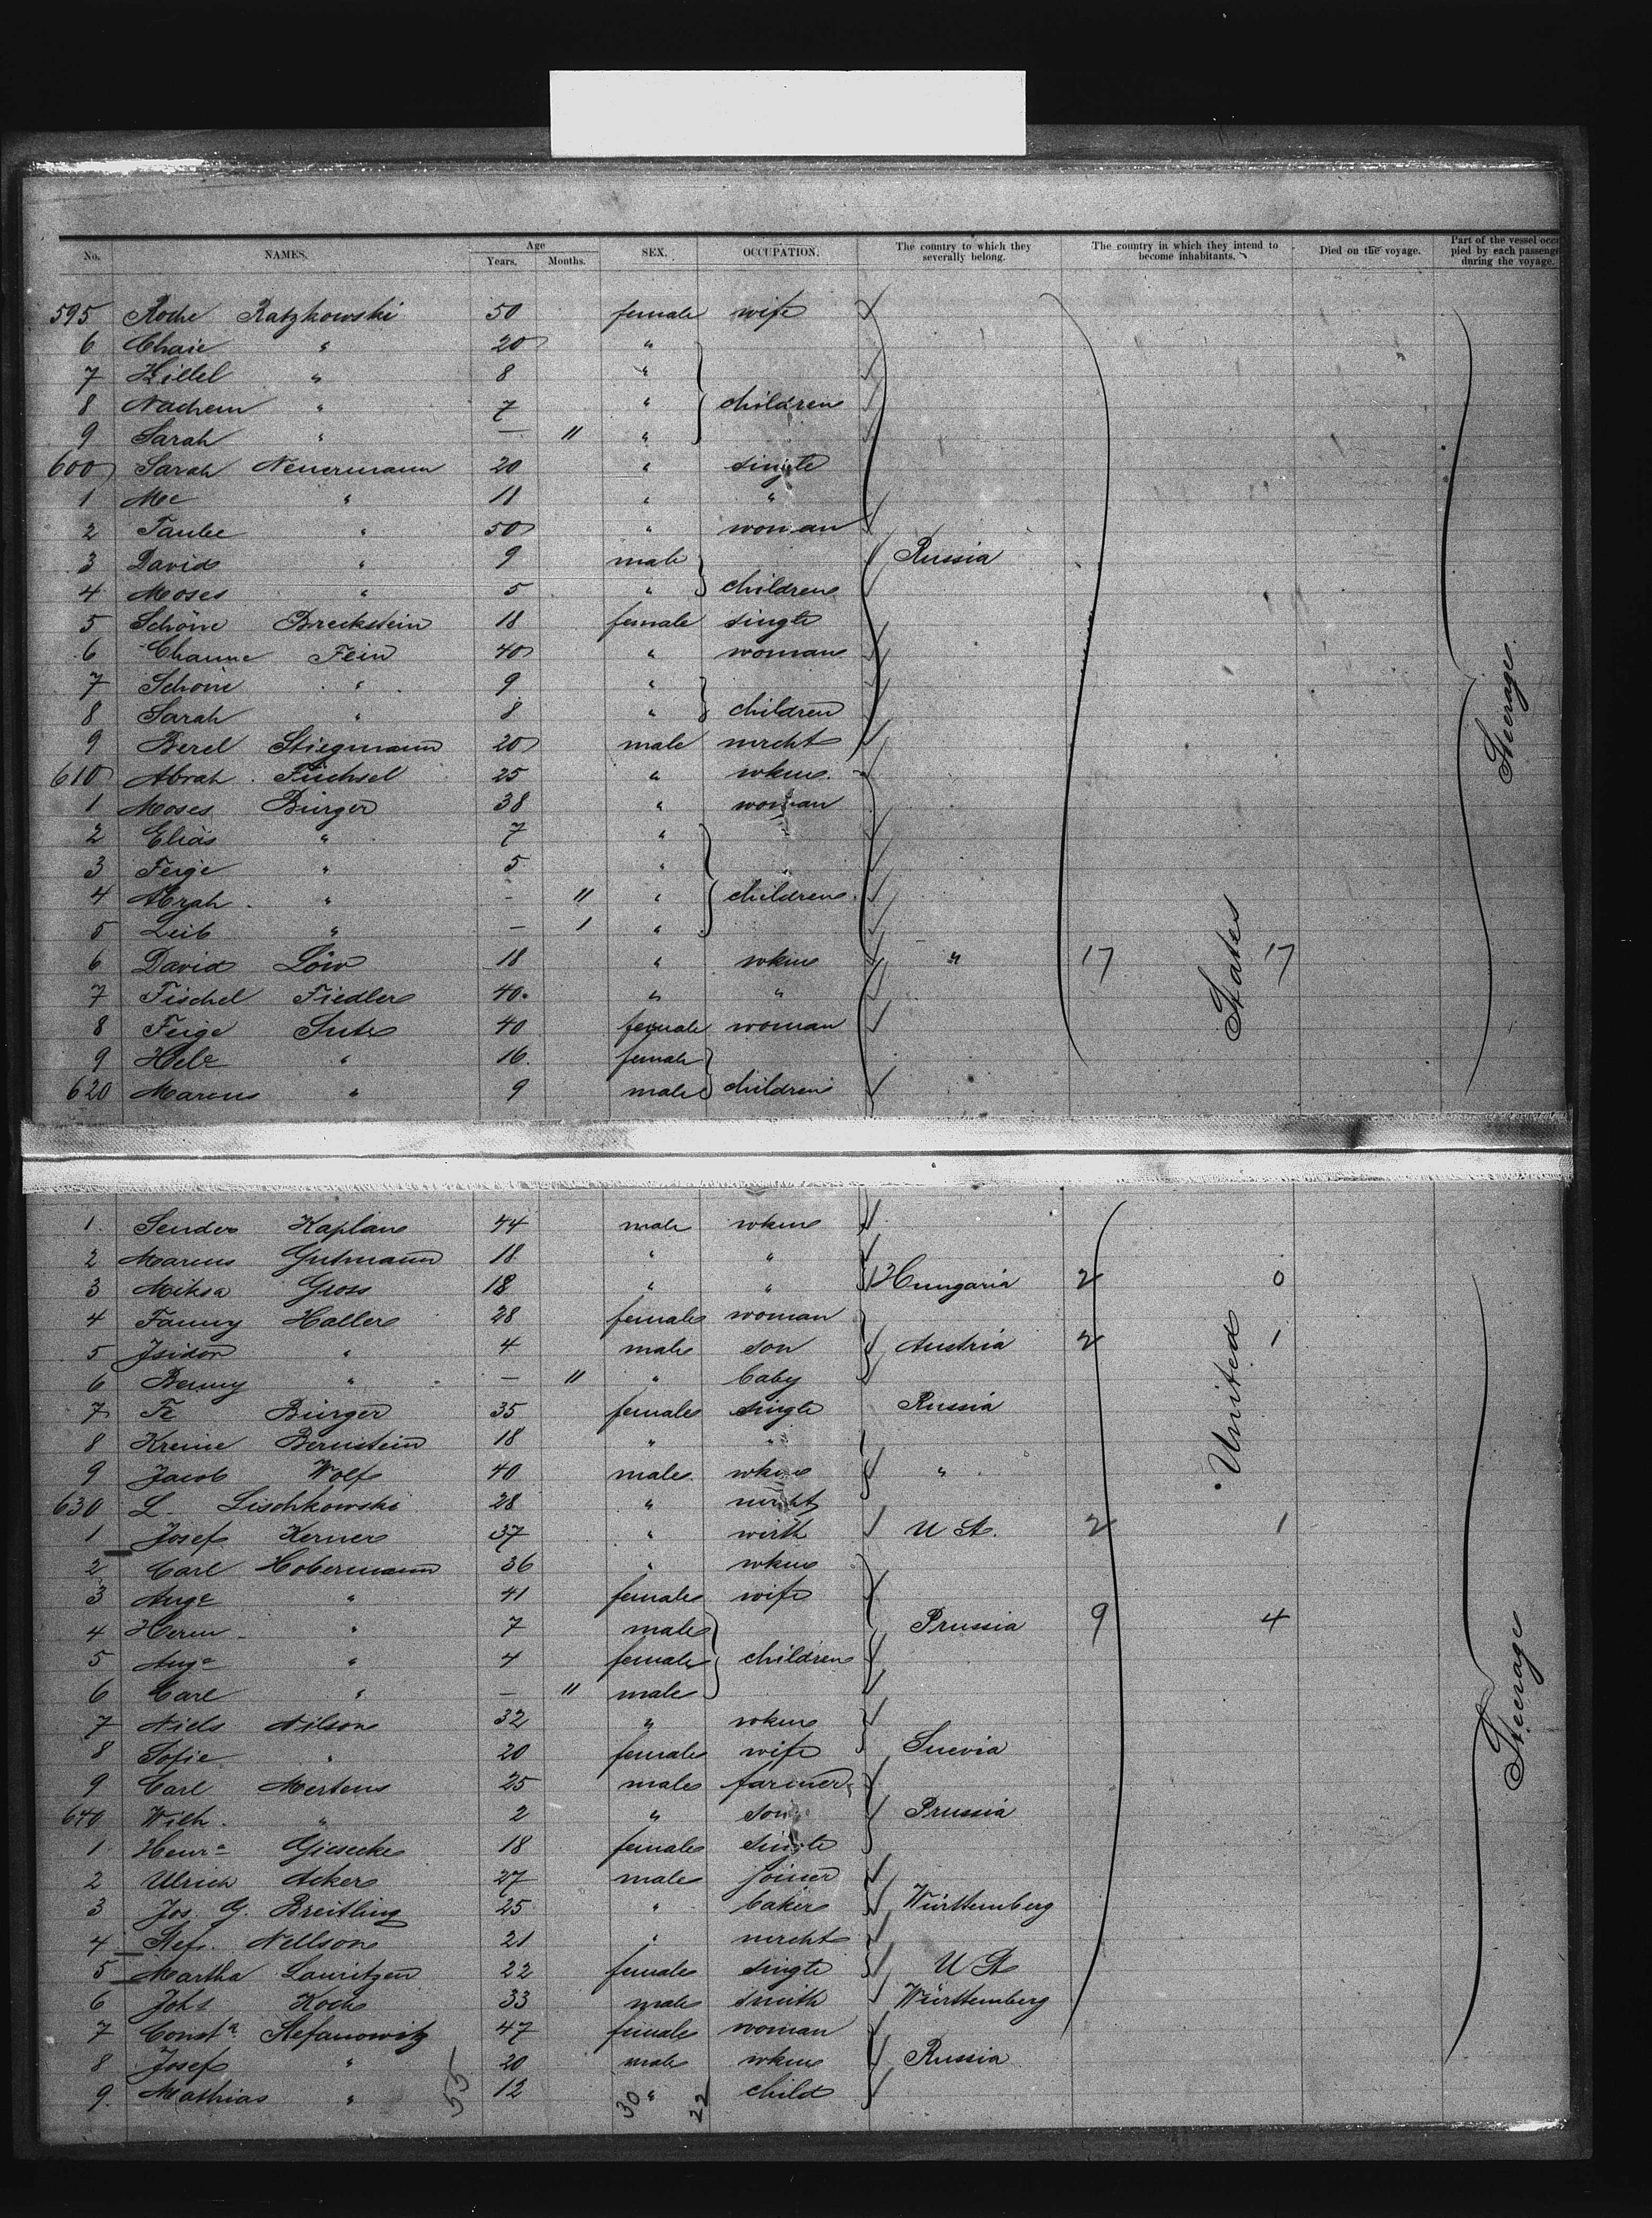 No. NAMES. Age Years. Months. SEX. OCCUPATION. The country to which they severally belong. The country in which they intend to become inhabitants. Died on the voyage. Part of the vessel occupied by each passenger during the voyage.
595 Roche Ratzkowski 50 female wife
6 Chaie " 20 "
7 Hillel " 8 "
8 Nachem " 7 " children
9 Sarah " — 11 "
600 Sarah Neuermann 20 " single
1 Me " 11 " "
2 Taube " 50 " woman
3 David " 9 male Russia
4 Moses " 5 " children
5 Schöne Breckstein 18 female single
6 Channe Fein 40 " woman
7 Schöne " 9 "
8 Sarah " 8 " children
9 Berel Stiegmann 20 male mercht
610 Abrah. Füchsel 25 " wkm.
1 Moses Bürger 38 " woman
2 Elias " 7 "
3 Feige " 5 "
4 Abrah. " - 11 " children
5 Leib " — 1 "
6 David Löw 18 " wkm " 17 States 17
7 Fischel Fiedler 40 " "
8 Feige Sute 40 female woman
9 Hele " 16 female
620 Marcus " 9 male children
Steerage
1 Sender Kaplan 44 male wkm
2 Marcus Gutmann 18 " "
3 Miksa Gross 18 " " Hungaria 2 0
4 Fanny Haller 28 female woman
5 Isidor " 4 male son Austria 2 United 1
6 Benny " — 11 " baby
7 Fe Bürger 35 female single Russia
8 Kreine Bernstein 18 " "
9 Jacob Wolf 40 male wkm "
630 L. Lischkowski 28 " mercht
1 Josef Kerner 37 " wirth U St. 2 1
2 Carl Hobermann 36 " wkm
3 Auge " 41 female wife
4 Herm. " 7 male Prussia 9 4
5 Auge " 4 female children
6 Carl " — 11 male
7 Niels Nilson 32 " wkm
8 Sofie " 20 female wife Suevia
9 Carl Mertens 25 male farmer
640 Wilh. " 2 " son Prussia
1 Henre Giesecke 18 female single
2 Ulrich Acker 27 male joiner
3 Jos. G. Breitling 25 " baker Württemberg
4 Stef. Nellson 21 " mercht
5 Martha Lauritzen 22 female single U St
6 Johs Koch 33 male smith Württemberg
7 Consta Stefanowitz 47 female woman
8 Josef " 20 male wkm Russia
9. Mathias " 12 " child
Steerage
55 30 22